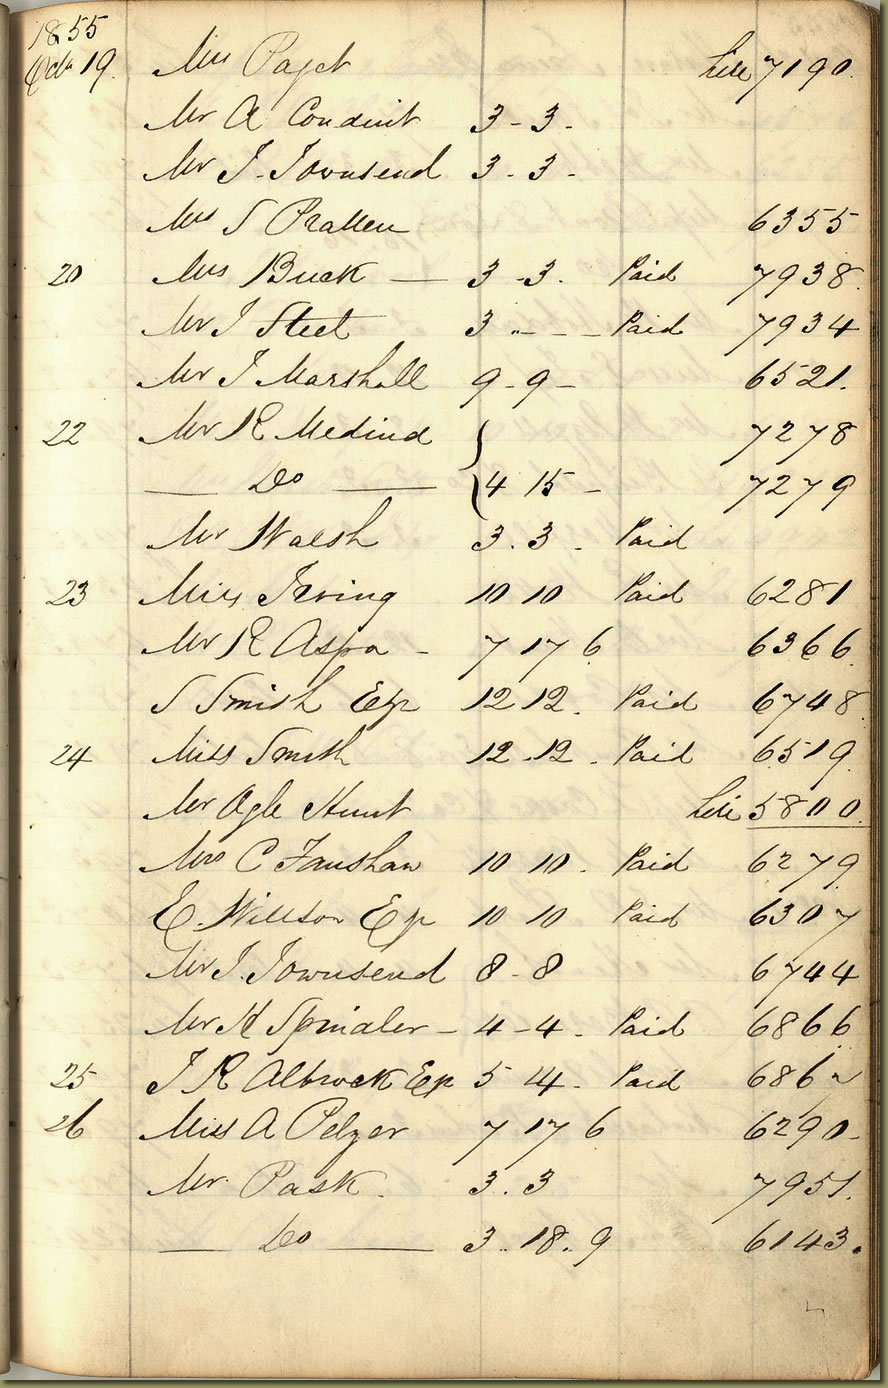 1855
Octr 19. Miss Paget Lill 7190.
Mr A Conduit 3-3-
Mr J. Townsend 3-3-
Mrs S Pratten 6355
20 Mrs Buck — 3-3. Paid 7938.
Mr J Steet 3 " - - Paid 7934
Mr J Marshall 9-9- 6521.
22 Mr R Medina } 7278
— Do — { 4 15 - 7279
Mr Walsh 3.3. Paid
23 Miss Irving 10 10 Paid 6281
Mr R Aspa - 7 17 6 6366
S Smith Esq 12 12. Paid 6748
24 Miss Smith 12.12. Paid 6519.
Mr Hunt 5800.
Mrs C Fanshaw 10 10. Paid 6279
E. Willson Esq 10 10 Paid 6307
Mr J. Townsend 8-8 6744
Mr H Spindler - 4-4. Paid 6866
25 J R Albrock Esq 5 4. Paid 686
26 Miss A Pelzer 7 17 6 6290-
Mr. Pask. 3.3 7951.
— Do — 3.18.9 6143.